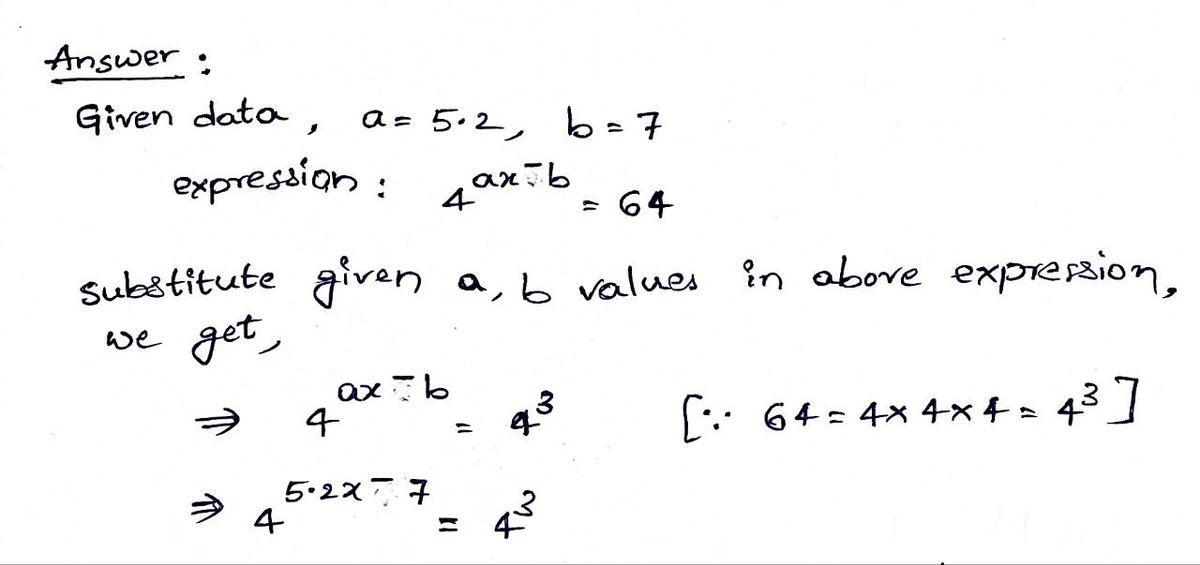 Answer :
Given data , a = 5.2, b = 7
expression : 4^(ax-b) = 64
substitute given a, b values in above expression,
we get,
⇒ 4^(ax-b) = 4^3 [∵ 64 = 4×4×4 = 4^3]
⇒ 4^(5.2x-7) = 4^3